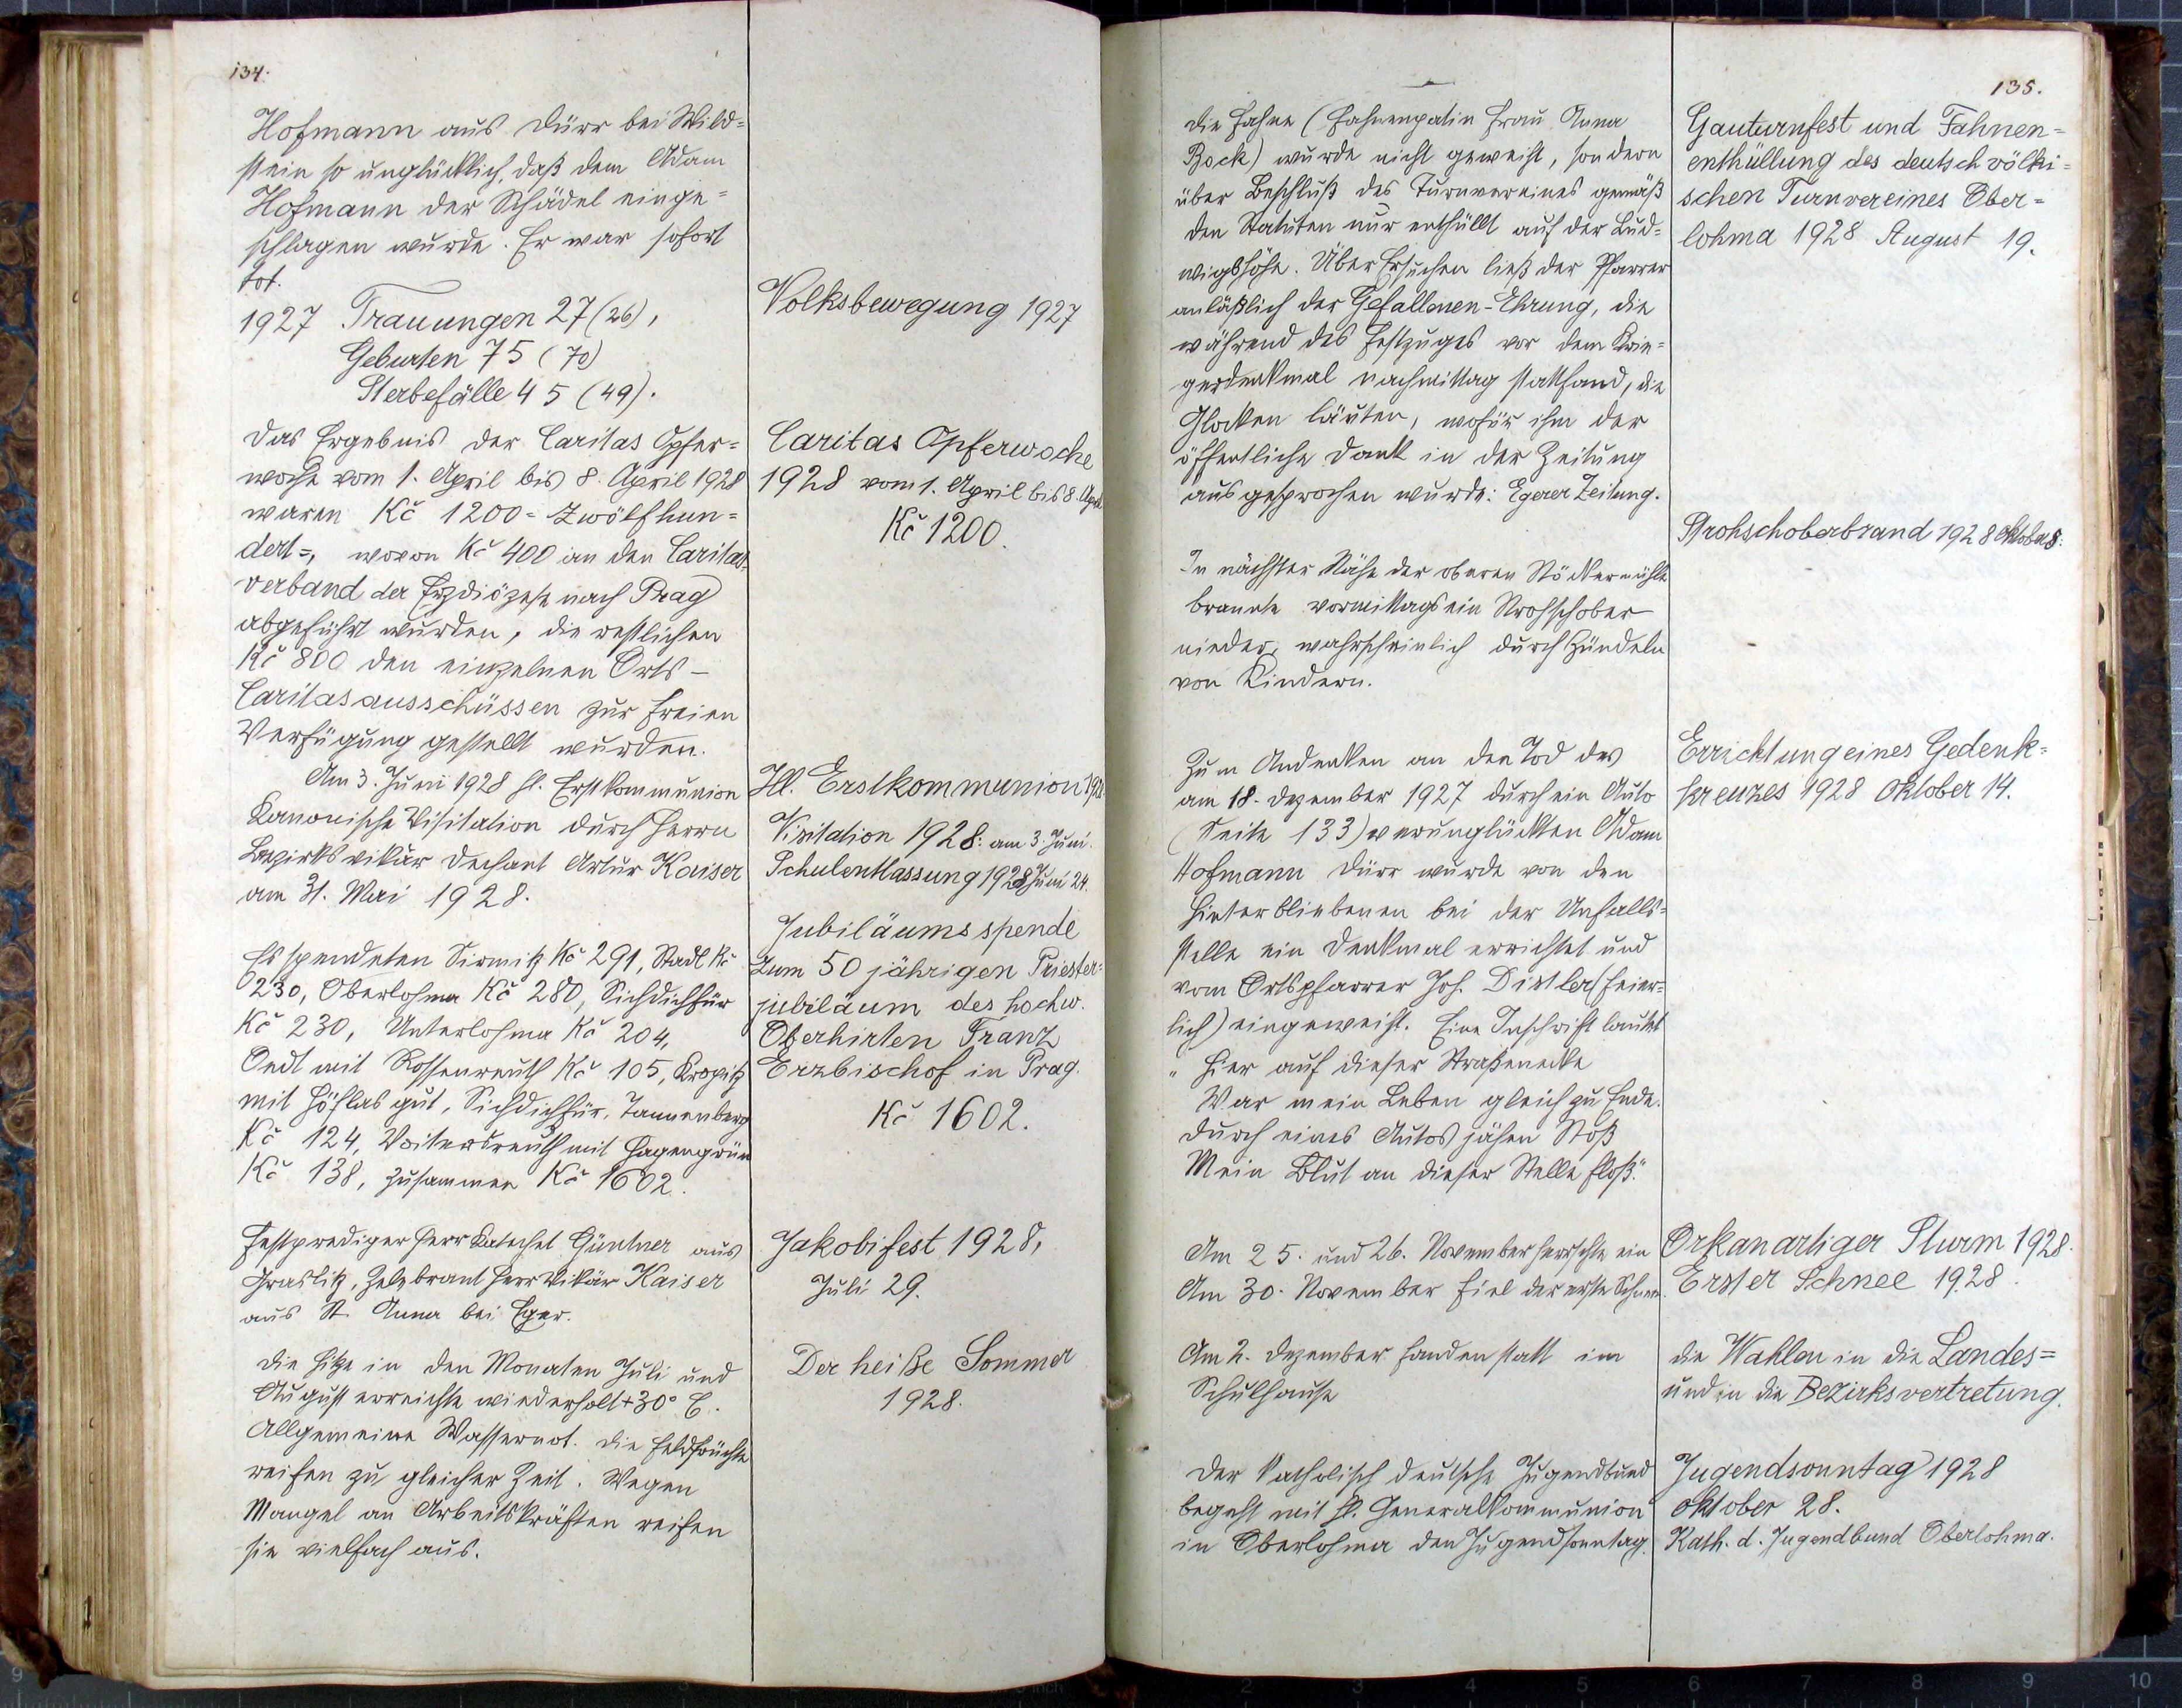 134.
Hofmann aus Dürr bei Wild=
stein so unglücklich, daß dem Adam
Hofmann der Schädel einge=
schlagen wurde. Er war sofort
tot.
1927 Trauungen 27 (26),
Geburten 75 (70)
Sterbefälle 45 (49).
Volksbewegung 1927
Das Ergebnis der Caritas Opfer=
woche vom 1. April bis 8. April 1928
waren Kč 1200 = Zwölfhun=
dert =, wovon Kč 400 an den Caritas=
verband der Erzdiözese nach Prag
abgeführt wurden, die restlichen
Kč 800 den einzelnen Orts-
Caritasausschüssen zur freien
Verfügung gestellt wurden.
Caritas Opferwoche
1928 vom 1. April bis 8. April
Kč 1200.
Am 3. Juni 1928 hl. Erstkommunion
Kanonische Visitation durch Herrn
Bezirksvikär Dechant Artur Kaiser
am 31. Mai 1928.
Hl. Erstkommunion 1928
Visitation 1928: am 3. Juni.
Schulentlassung 1928 Juni 24.
Es spendeten Sirmitz Kč 291, Stadl Kč
230, Oberlohma Kč 280, Sichdichfür
Kč 230, Unterlohma Kč 204,
Oedt mit Rossenreuth Kč 105, Kropitz
mit Höflasgut, Sichdichfür, Tannenberg
Kč 124, Voitersreuth mit Hagengrün
Kč 138, zusammen Kč 1602.
Jubiläumsspende
zum 50 jährigen Priester=
jubiläum des hochw.
Oberhirten Franz
Erzbischof in Prag.
Kč 1602.
Festprediger Herr Katechet Güntner aus
Graslitz, Zelebrant Herr Vikär Kaiser
aus St. Anna bei Eger.
Jakobifest 1928,
Juli 29.
Die Hitze in den Monaten Juli und
August erreichte wiederholt +30° C.
Allgemeine Wassernot. Die Feldfrüchte
reifen zu gleicher Zeit. Wegen
Mangel an Arbeitskräften reifen
sie vielfach aus.
Der heiße Sommer
1928.
135.
Die Fahne (Fahnenpatin Frau Anna
Bock) wurde nicht geweiht, sondern
über Beschluß des Turnvereines gemäß
den Statuten nur enthüllt auf der Lud=
wigshöhe. Über Ersuchen ließ der Pfarrer
anläßlich der Gefallenen-Ehrung, die
während des Festzuges vor dem Krie=
gerdenkmal nachmittag stattfand, die
Glocken läuten, wofür ihm der
öffentliche Dank in der Zeitung
ausgesprochen wurde: Egerer Zeitung.
Gauturnfest und Fahnen=
enthüllung des deutsch völki=
schen Turnvereines Ober=
lohma 1928 August 19.
In nächster Nähe der oberen Stöckermühle
brannte vormittags ein Strohschober
nieder, wahrscheinlich durch Zündeln
von Kindern.
Strohschoberbrand 1928 Oktober 8.
Zum Andenken an den Tod des
am 18. Dezember 1927 durch ein Auto
(Seite 133) verunglückten Adam
Hofmann Dürr wurde von den
Hinterbliebenen bei der Unfalls=
stelle ein Denkmal errichtet und
vom Ortspfarrer Joh. Distler (feier=
lich) eingeweiht. Eine Inschrift lautet
„Hier auf dieser Straßenecke
War mein Leben gleich zu Ende.
Durch eines Autos jähen Stoß
Mein Blut an dieser Stelle floß."
Errichtung eines Gedenk=
kreuzes 1928 Oktober 14.
Am 25. und 26. November herrschte ein
Am 30. November fiel der erste Schnee.
Orkanartiger Sturm 1928.
Erster Schnee 1928.
Am 2. Dezember fanden statt im
Schulhause
die Wahlen in die Landes=
und in die Bezirksvertretung.
Der katholisch deutsche Jugendbund
begeht mit hl. Generalkommunion
in Oberlohma den Jugendsonntag.
Jugendsonntag 1928
Oktober 28.
Kath. d. Jugendbund Oberlohma.